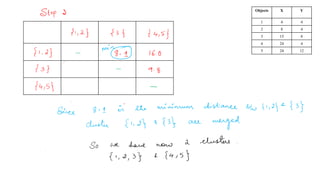 Step 3
Objects X Y
1 4 4
2 8 4
3 15 8
4 24 4
5 24 12
{1,2} {3} {4,5}
min
{1,2} — 8.9 16.0
{3} — 9.8
{4,5} —
Since 8.9 is the minimum distance b/w {1,2} & {3}
cluster {1,2} & {3} are merged
So we have now 2 clusters.
{1,2,3} & {4,5}